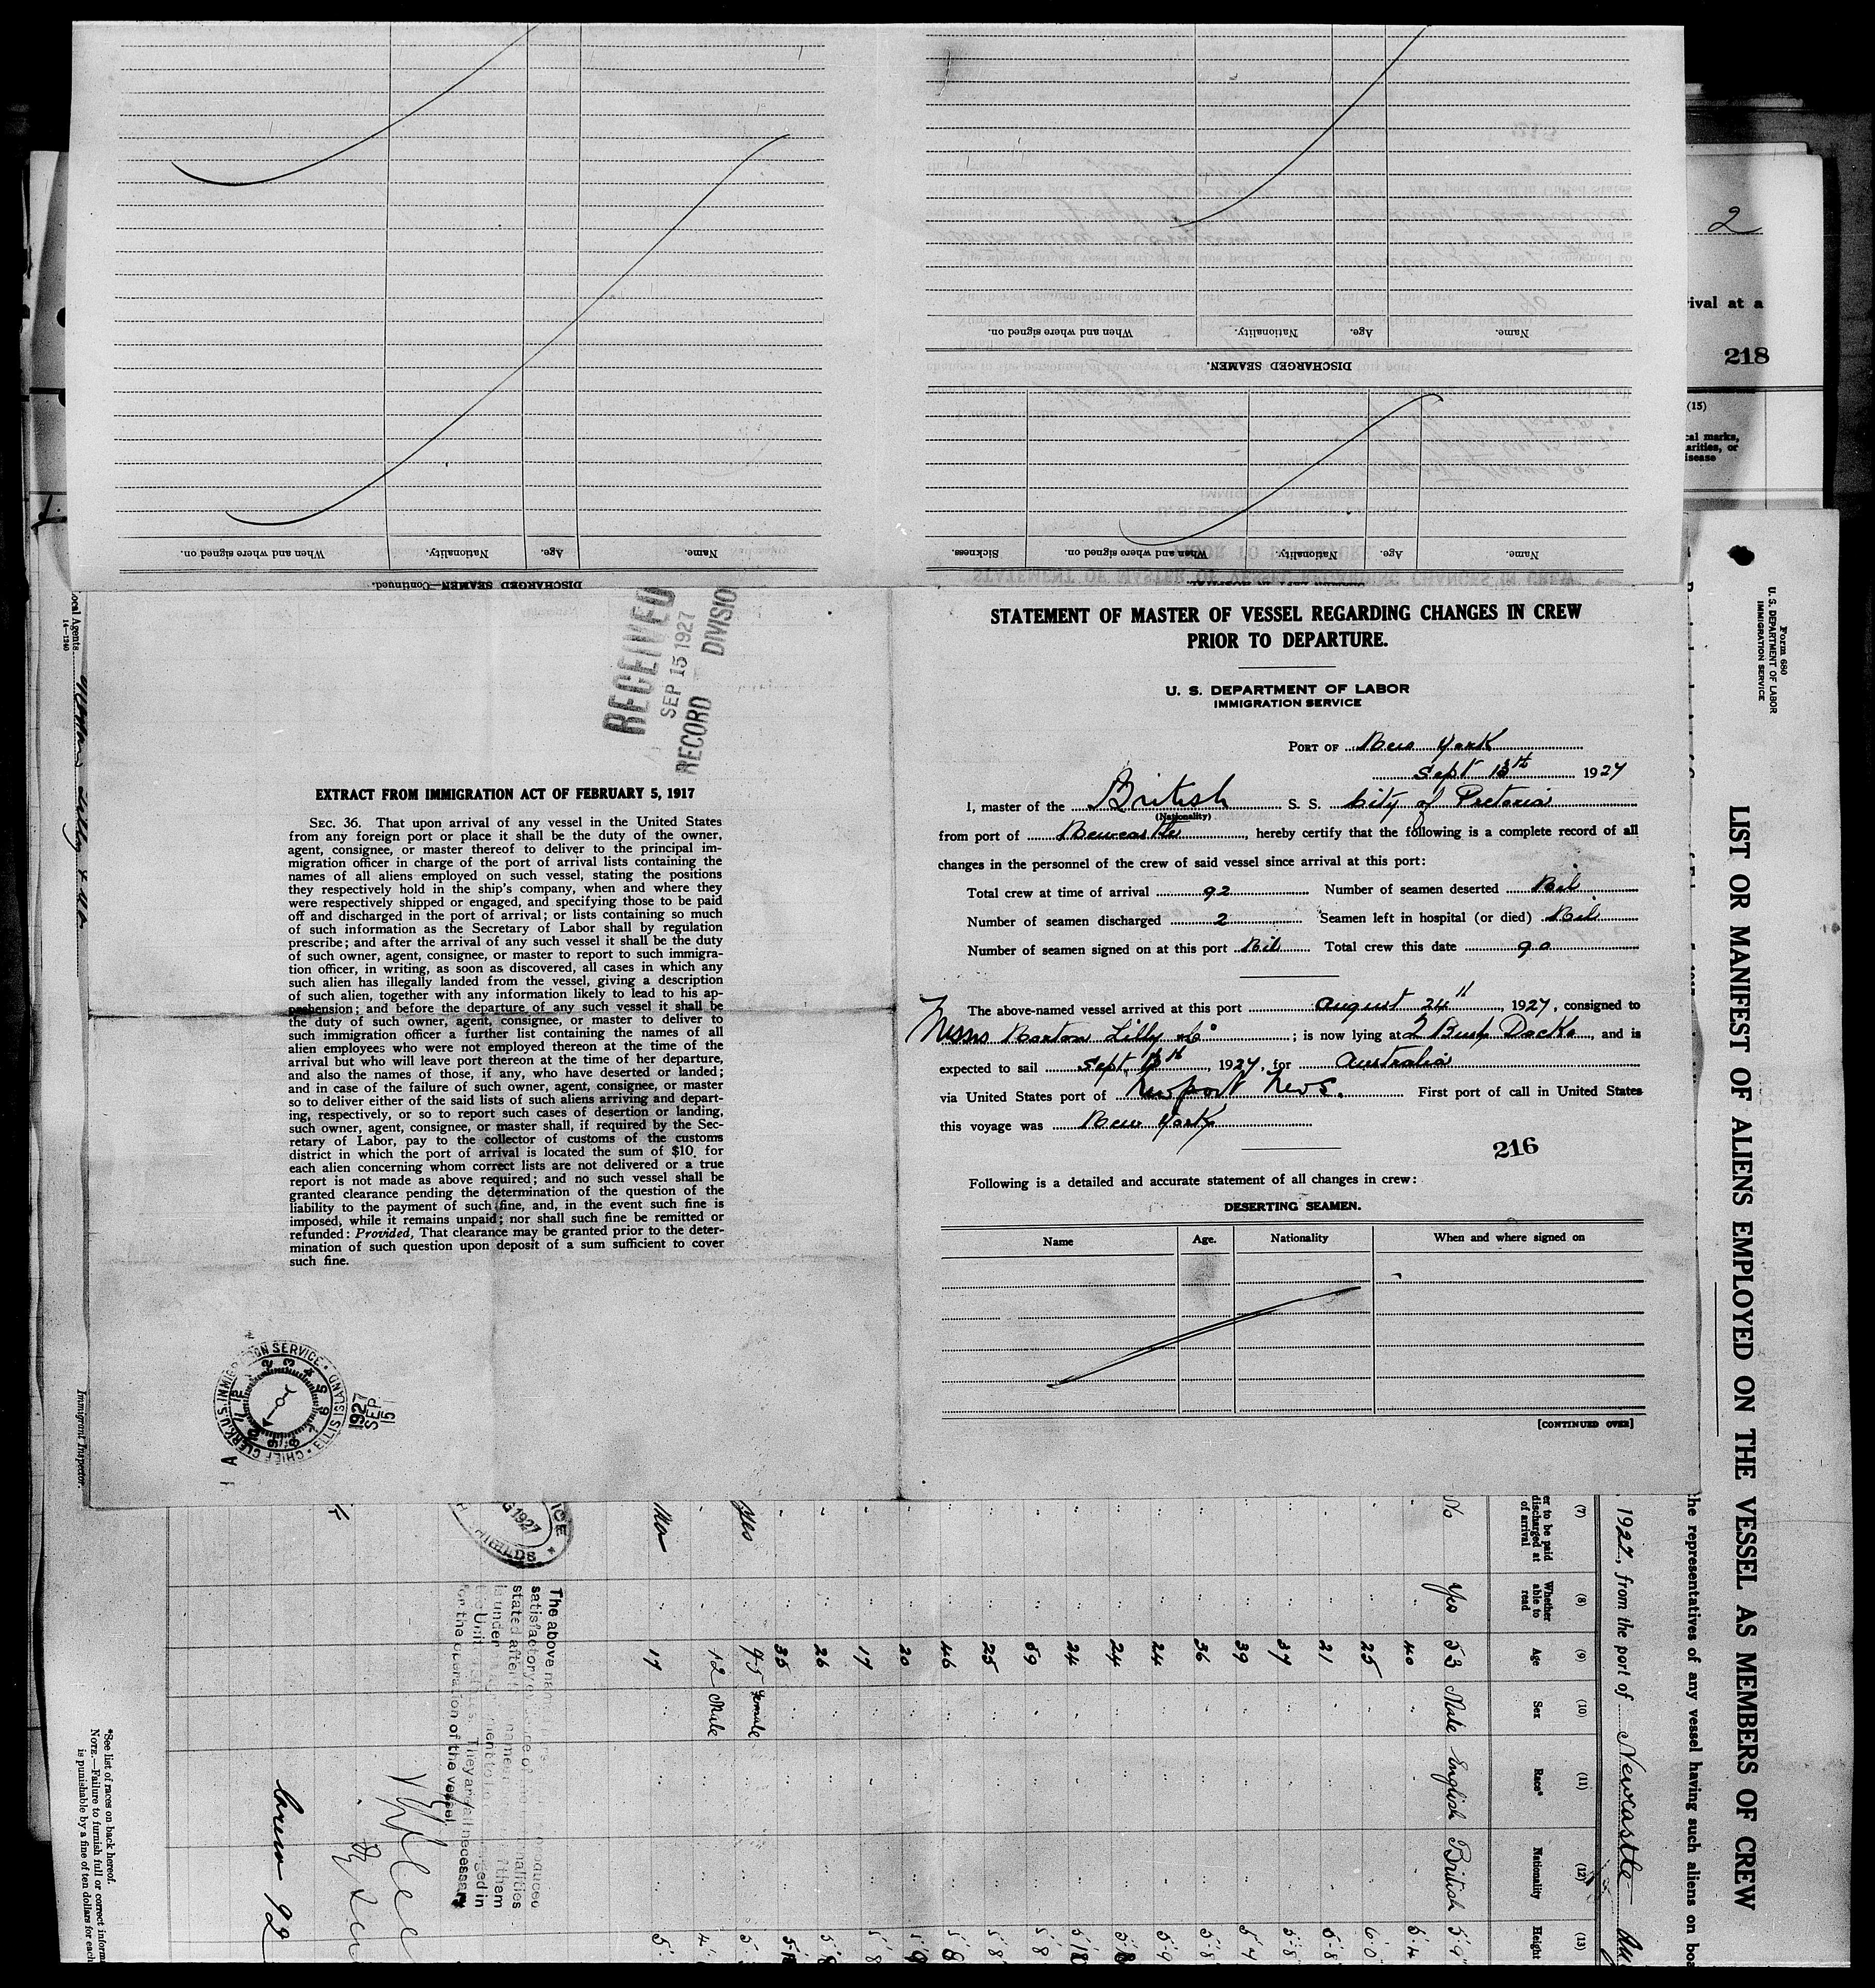 DISCHARGED SEAMEN.
Name.
Age.
Nationality.
When and where signed on.
Name.
Age.
Nationality.
When and where signed on.
Sickness.
DISCHARGED SEAMEN—Continued.
Name.
Age.
Nationality.
When and where signed on.
2
rival at a
218
(15)
cal marks,
arities, or
isease
RECEIVED
SEP 15 1927
RECORD DIVISIO
EXTRACT FROM IMMIGRATION ACT OF FEBRUARY 5, 1917
SEC. 36. That upon arrival of any vessel in the United States
from any foreign port or place it shall be the duty of the owner,
agent, consignee, or master thereof to deliver to the principal im-
migration officer in charge of the port of arrival lists containing the
names of all aliens employed on such vessel, stating the positions
they respectively hold in the ship's company, when and where they
were respectively shipped or engaged, and specifying those to be paid
off and discharged in the port of arrival; or lists containing so much
of such information as the Secretary of Labor shall by regulation
prescribe; and after the arrival of any such vessel it shall be the duty
of such owner, agent, consignee, or master to report to such immigra-
tion officer, in writing, as soon as discovered, all cases in which any
such alien has illegally landed from the vessel, giving a description
of such alien, together with any information likely to lead to his ap-
prehension; and before the departure of any such vessel it shall be
the duty of such owner, agent, consignee, or master to deliver to
such immigration officer a further list containing the names of all
alien employees who were not employed thereon at the time of the
arrival but who will leave port thereon at the time of her departure,
and also the names of those, if any, who have deserted or landed;
and in case of the failure of such owner, agent, consignee, or master
so to deliver either of the said lists of such aliens arriving and depart-
ing, respectively, or so to report such cases of desertion or landing,
such owner, agent, consignee, or master shall, if required by the Sec-
retary of Labor, pay to the collector of customs of the customs
district in which the port of arrival is located the sum of $10 for
each alien concerning whom correct lists are not delivered or a true
report is not made as above required; and no such vessel shall be
granted clearance pending the determination of the question of the
liability to the payment of such fine, and, in the event such fine is
imposed, while it remains unpaid; nor shall such fine be remitted or
refunded: Provided, That clearance may be granted prior to the deter-
mination of such question upon deposit of a sum sufficient to cover
such fine.
CHIEF CLERK U.S. IMMIGRATION SERVICE · ELLIS ISLAND
1927
SEP
15
STATEMENT OF MASTER OF VESSEL REGARDING CHANGES IN CREW
PRIOR TO DEPARTURE.
U. S. DEPARTMENT OF LABOR
IMMIGRATION SERVICE
PORT OF New York
Sept 13th 1927
I, master of the British S. S. City of Pretoria
(Nationality)
from port of Newcastle, hereby certify that the following is a complete record of all
changes in the personnel of the crew of said vessel since arrival at this port:
Total crew at time of arrival 92 Number of seamen deserted Nil
Number of seamen discharged 2 Seamen left in hospital (or died) Nil
Number of seamen signed on at this port Nil Total crew this date 90
The above-named vessel arrived at this port August 24th, 1927, consigned to
Messrs Norton Lilly & Co; is now lying at 2 Bush Docks, and is
expected to sail Sept 13th, 1927, for Australia
via United States port of Newport News. First port of call in United States
this voyage was New York
216
Following is a detailed and accurate statement of all changes in crew:
DESERTING SEAMEN.
Name Age. Nationality When and where signed on
[CONTINUED OVER]
Form 680
U. S. DEPARTMENT OF LABOR
IMMIGRATION SERVICE
LIST OR MANIFEST OF ALIENS EMPLOYED ON THE VESSEL AS MEMBERS OF CREW
the representatives of any vessel having such aliens on boa
1927, from the port of Newcastle
(7) (8) (9) (10) (11) (12) (13)
er to be paid
discharged at
of arrival
Whether
able to
read
Age
Sex
Race*
Nationality
Height
No Yes 53 Male English British 5'9
40 5'4
25 6'0
21 5'8
37 5'8
39 5'7
36 5'8
24 5'9
24
24 5'10
59 5'8
25 5'8
46 5'8
20
17 5'8
26 5'8
35
Yes 45 Female 5
12 Male 4
No 17 5
The above
satisfactory
stated after
is under
the Unit
for the operation of the vessel.
They are all necessary
Crew 92
ocal Agents
14—1240
Norton Lilly & Co
Immigrant Inspector.
*See list of races on back hereof.
NOTE.—Failure to furnish full or correct inform
is punishable by a fine of ten dollars for each